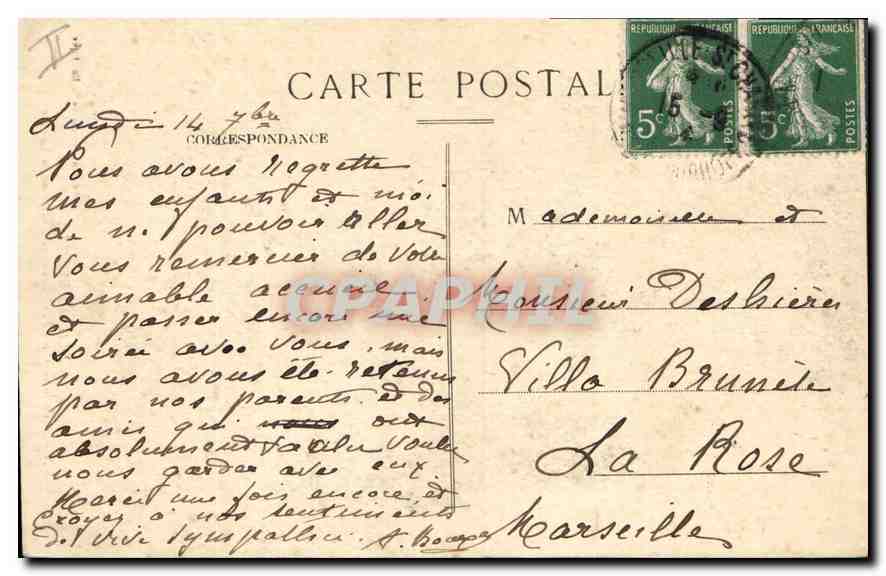 II
CARTE POSTALE
REPUBLIQUE FRANÇAISE
5c POSTES
REPUBLIQUE FRANÇAISE
5c POSTES
Lundi 14 7bre
CORRESPONDANCE
Nous avons regretté
mes enfants et moi
de ne pouvoir aller
vous remercier de votre
aimable accueil
et passer encore une
soirée avec vous, mais
nous avons été retenus
par nos parents et des
amis qui nous ont
absolument voulu
nous garder avec eux.
Merci une fois encore et
croyez à nos sentiments
de vive sympathie
Mademoiselle et
Monsieur Deshières
Villa Brunète
La Rose
Marseille
CPAPHIL